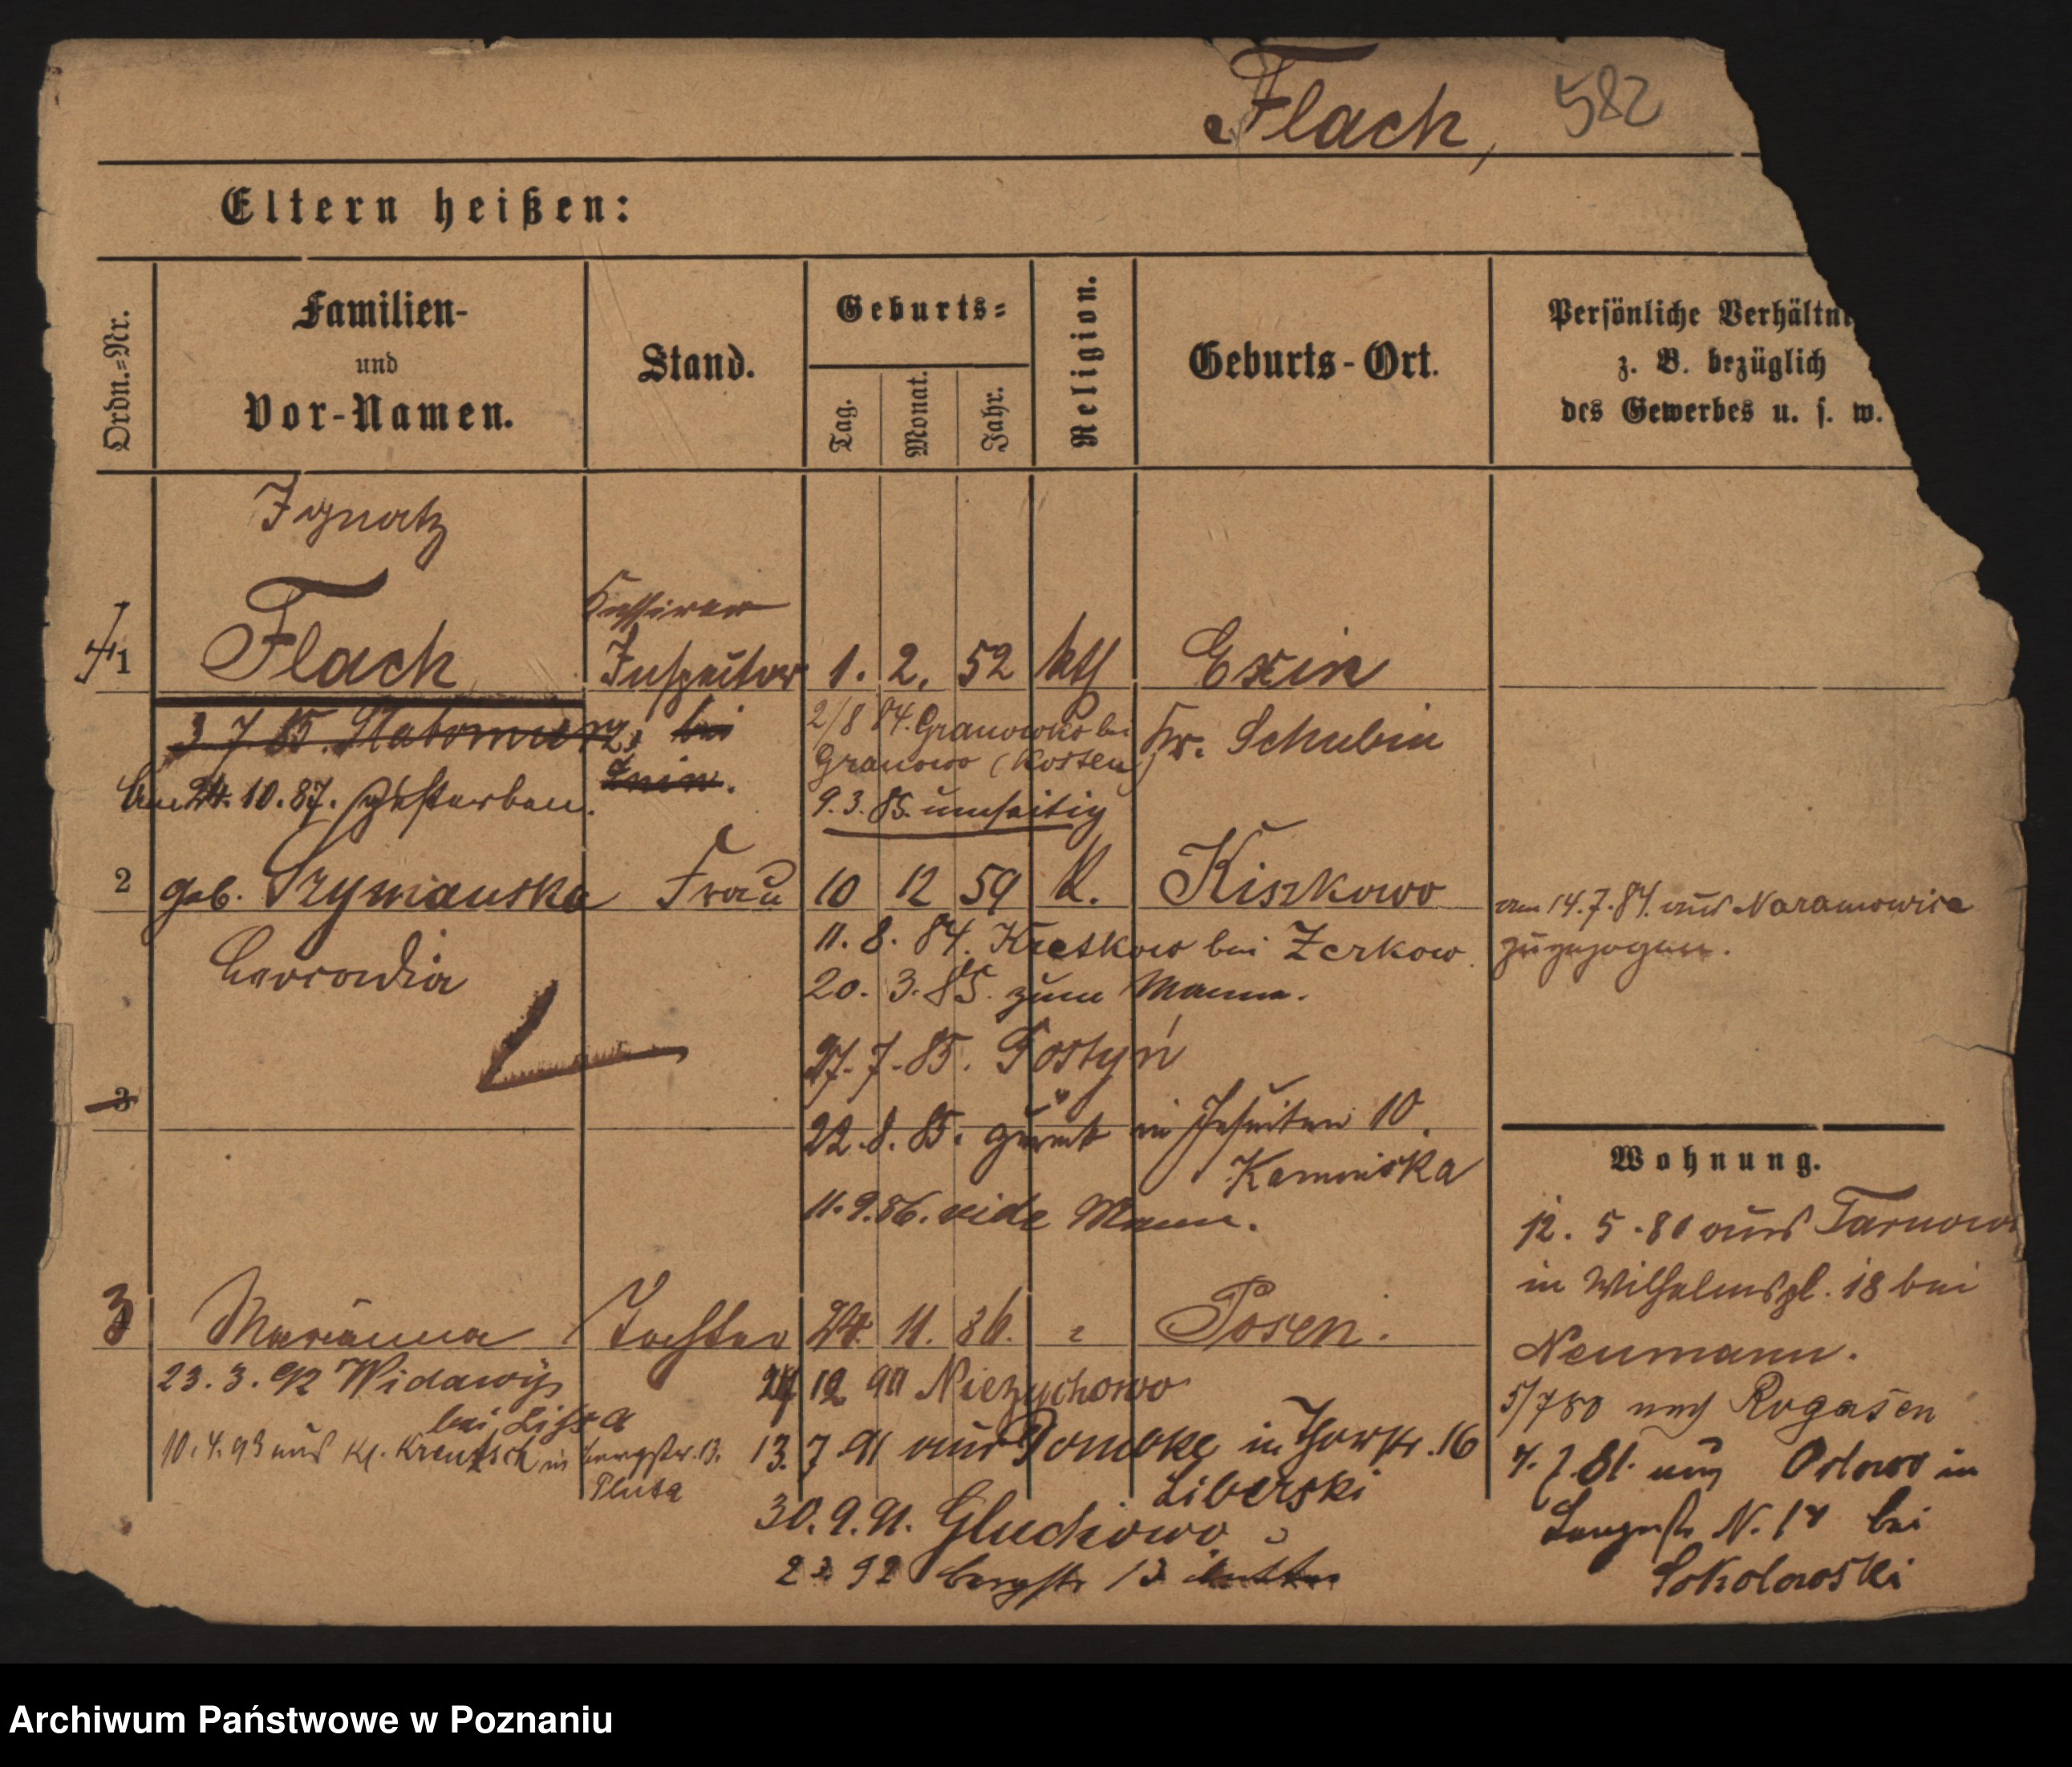 Flach, 582
Eltern heißen:
Ordn.=Nr.
Familien-
und
Vor-Namen.
Stand.
Geburts=
Tag.
Monat.
Jahr.
Religion.
Geburts-Ort.
Persönliche Verhältni
z. B. bezüglich
des Gewerbes u. s. w.
Ignatz
Kassirer
1 Flach Inspector 1. 2. 52 kth Exin
3. 7. 85. bei 2/8 84. Granowko bei Kr. Schubin
Znin. Granowo (Kosten)
Am 24. 10. 87. gestorben. 9. 3. 85. umseitig
2 geb. Szymanska Frau 10 12 59 K. Kiszkowo am 14. 7. 84. aus Naramowice
zugezogen.
Leocadia 11. 8. 84. bei Zerkow
20. 3. 85. zum Manne.
27. 7. 85. Gostyń
3
22. 8. 85. zurück in Jesuiten 10.
Kaminska
11. 9. 86. vide Mann.
Wohnung.
12. 5. 80 aus Tarnow
in Wilhelmspl. 18 bei
Neumann.
5/7 80 nach Rogasen
4. 7. 81. aus Orlowo in
N. bei
Sokolowski
3 Marianna Tochter 24. 11. 86. " Posen.
23. 3. 92 Widawy 12 90 Niezychowo
bei Lissa
10. 4. 93 aus Kl. Kreutsch in Bergstr. 13. 13. 7 91 aus in Thorstr. 16
Pluta Liberski
30. 9. 91. Gluchowo
92 Bergstr 13
Archiwum Państwowe w Poznaniu